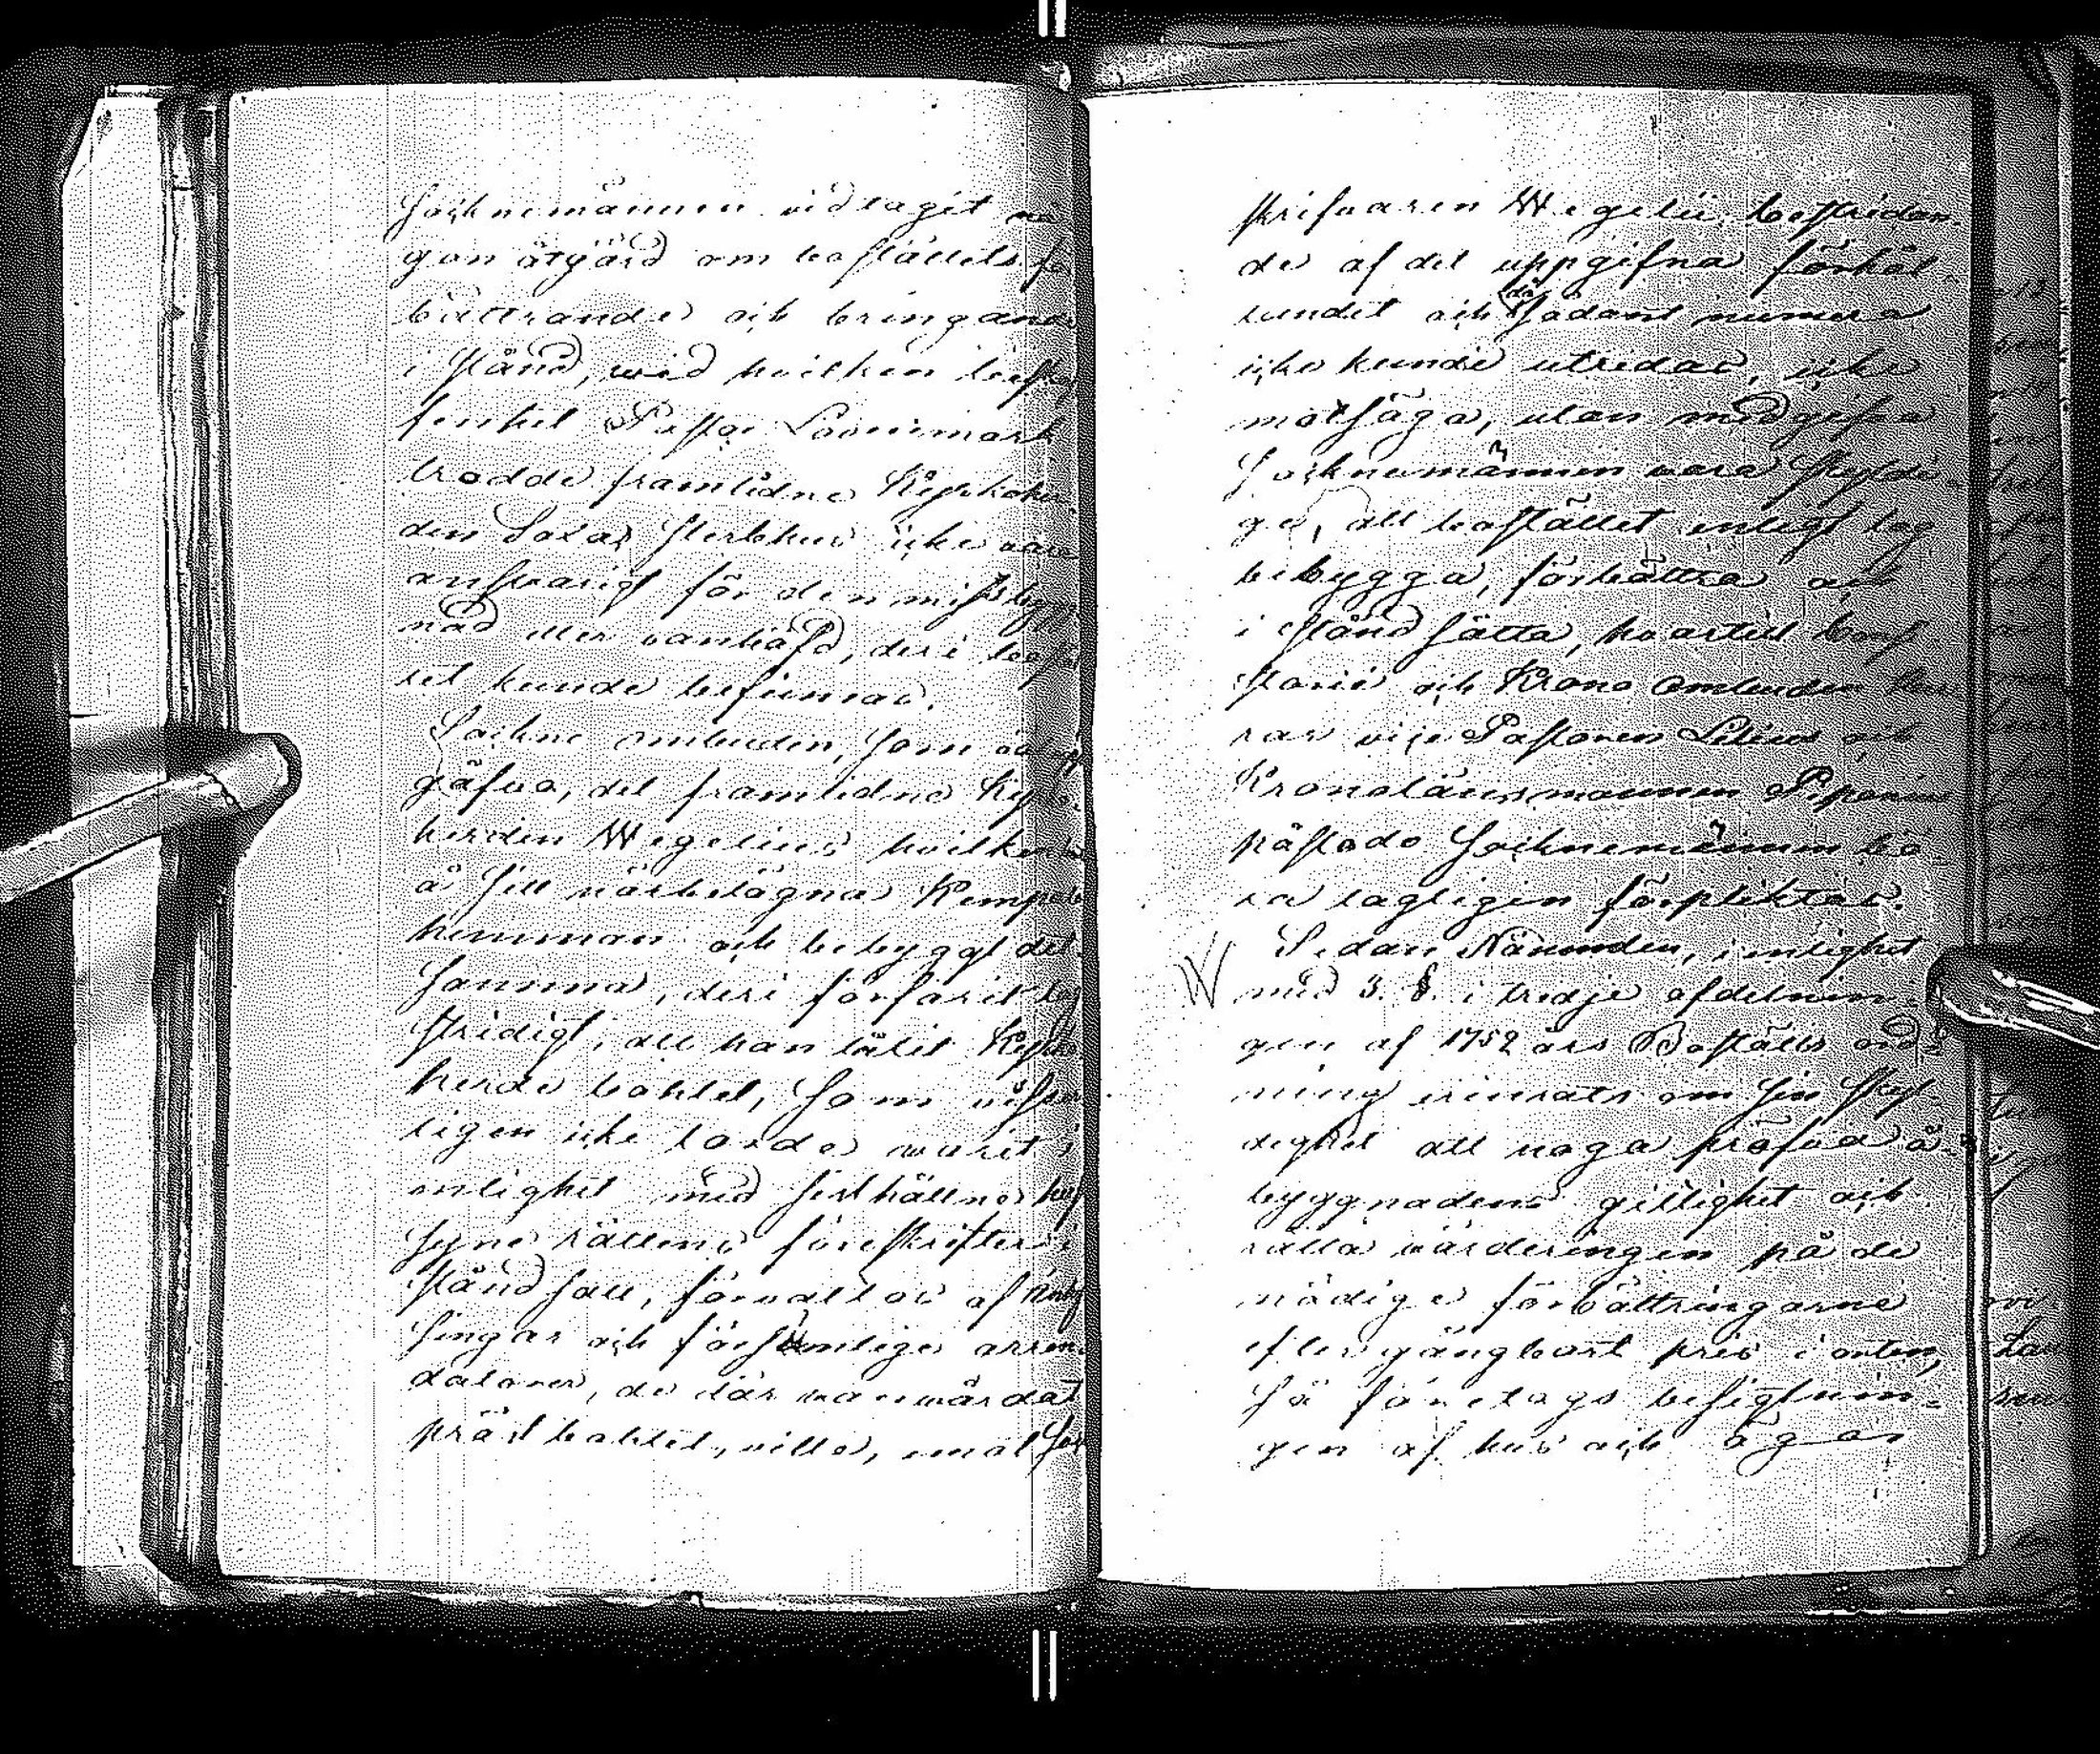 Socknemännen vidtagit nå
gon åtgärd om boställets för
bättrande och bringande
i stånd, wid hvilken beskaf
fenhet Pastor Lönnmark
trodde framlidne Kyrkoher
den Saxas sterbhus icke vara
answarigt för den missbygg
nad eller vanhäfd, deri bostäl
let kunde befinnas.
Sockne ombuden, som
gåfvo, det framlidne Kyrko
herden Wegelius hvilken
å sitt närbelägna Kempele
hemman och bebyggt det
samma, deri förfarit lag
stridigt, att han låtit Kyrko
herde bohlet, som visser
ligen icke torde warit i
enlighet med sisthållne hus
syne rättens föreskrifter i
stånd satt, förvaltas af Inhy
singar och försumlige arren
datorer, de där wanwårdat
präst bohlet, ville, emot Hof
skrifvaren Wegelii bestridan-
de af det uppgifna förhål-
landet och då sådant numera
icke kunde utredas, icke
motsäga, utan medgifva
Socknemännen vara skyldi-
ge, att bostället enligt lag
bebygga, förbättra och
i stånd sätta, hvartill Consi
storii och Krono ombuden Her
rar vice Pastoren Lilius och
Kronolänsmannen Piponius
påstodo Socknemännen bö-
ra lagligen förpliktas.
Sedan Nämnden, i enlighet
med 3. §. i tredje afdelnin-
gen af 1752 års Boställs ord-
ning erinrats om sin skyl-
dighet att noga pröfva å-
byggnadens gillighet och
ställa värderingen på de
nödige förbättringarne
efter gångbart pris i orten,
så företogs besigtnin-
gen af hus och ägor